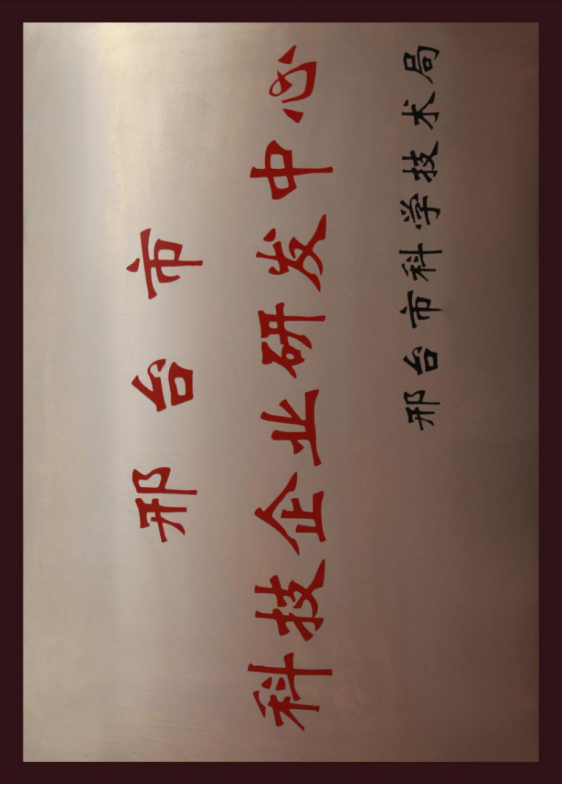 邢台市
科技企业研发中心
邢台市科学技术局